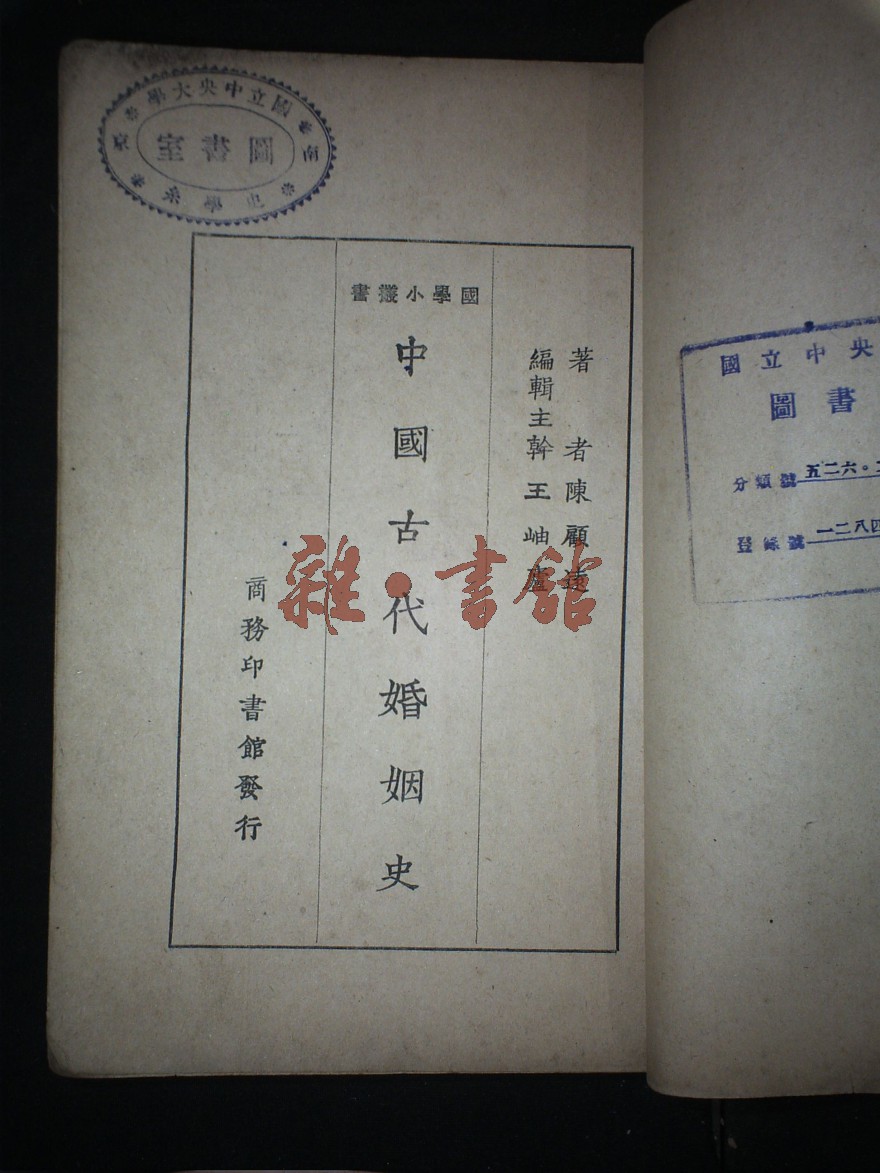 國立中央大學
南京
圖書室
史學系
著者陳顧遠
編輯主幹王岫廬
國學小叢書
中國古代婚姻史
商務印書館發行
雜·書館
國立中央
圖書
分類號五二六·
登錄號一二八四